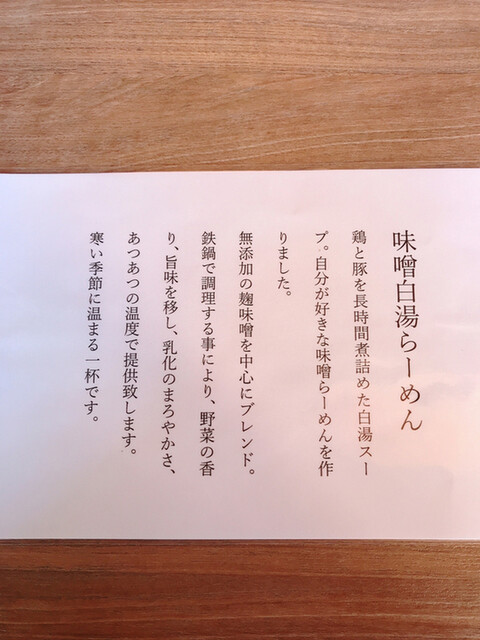 味噌白湯らーめん
鶏と豚を長時間煮詰めた白湯スー
プ。自分が好きな味噌らーめんを作
りました。
無添加の麹味噌を中心にブレンド。
鉄鍋で調理する事により、野菜の香
り、旨味を移し、乳化のまろやかさ、
あつあつの温度で提供致します。
寒い季節に温まる一杯です。